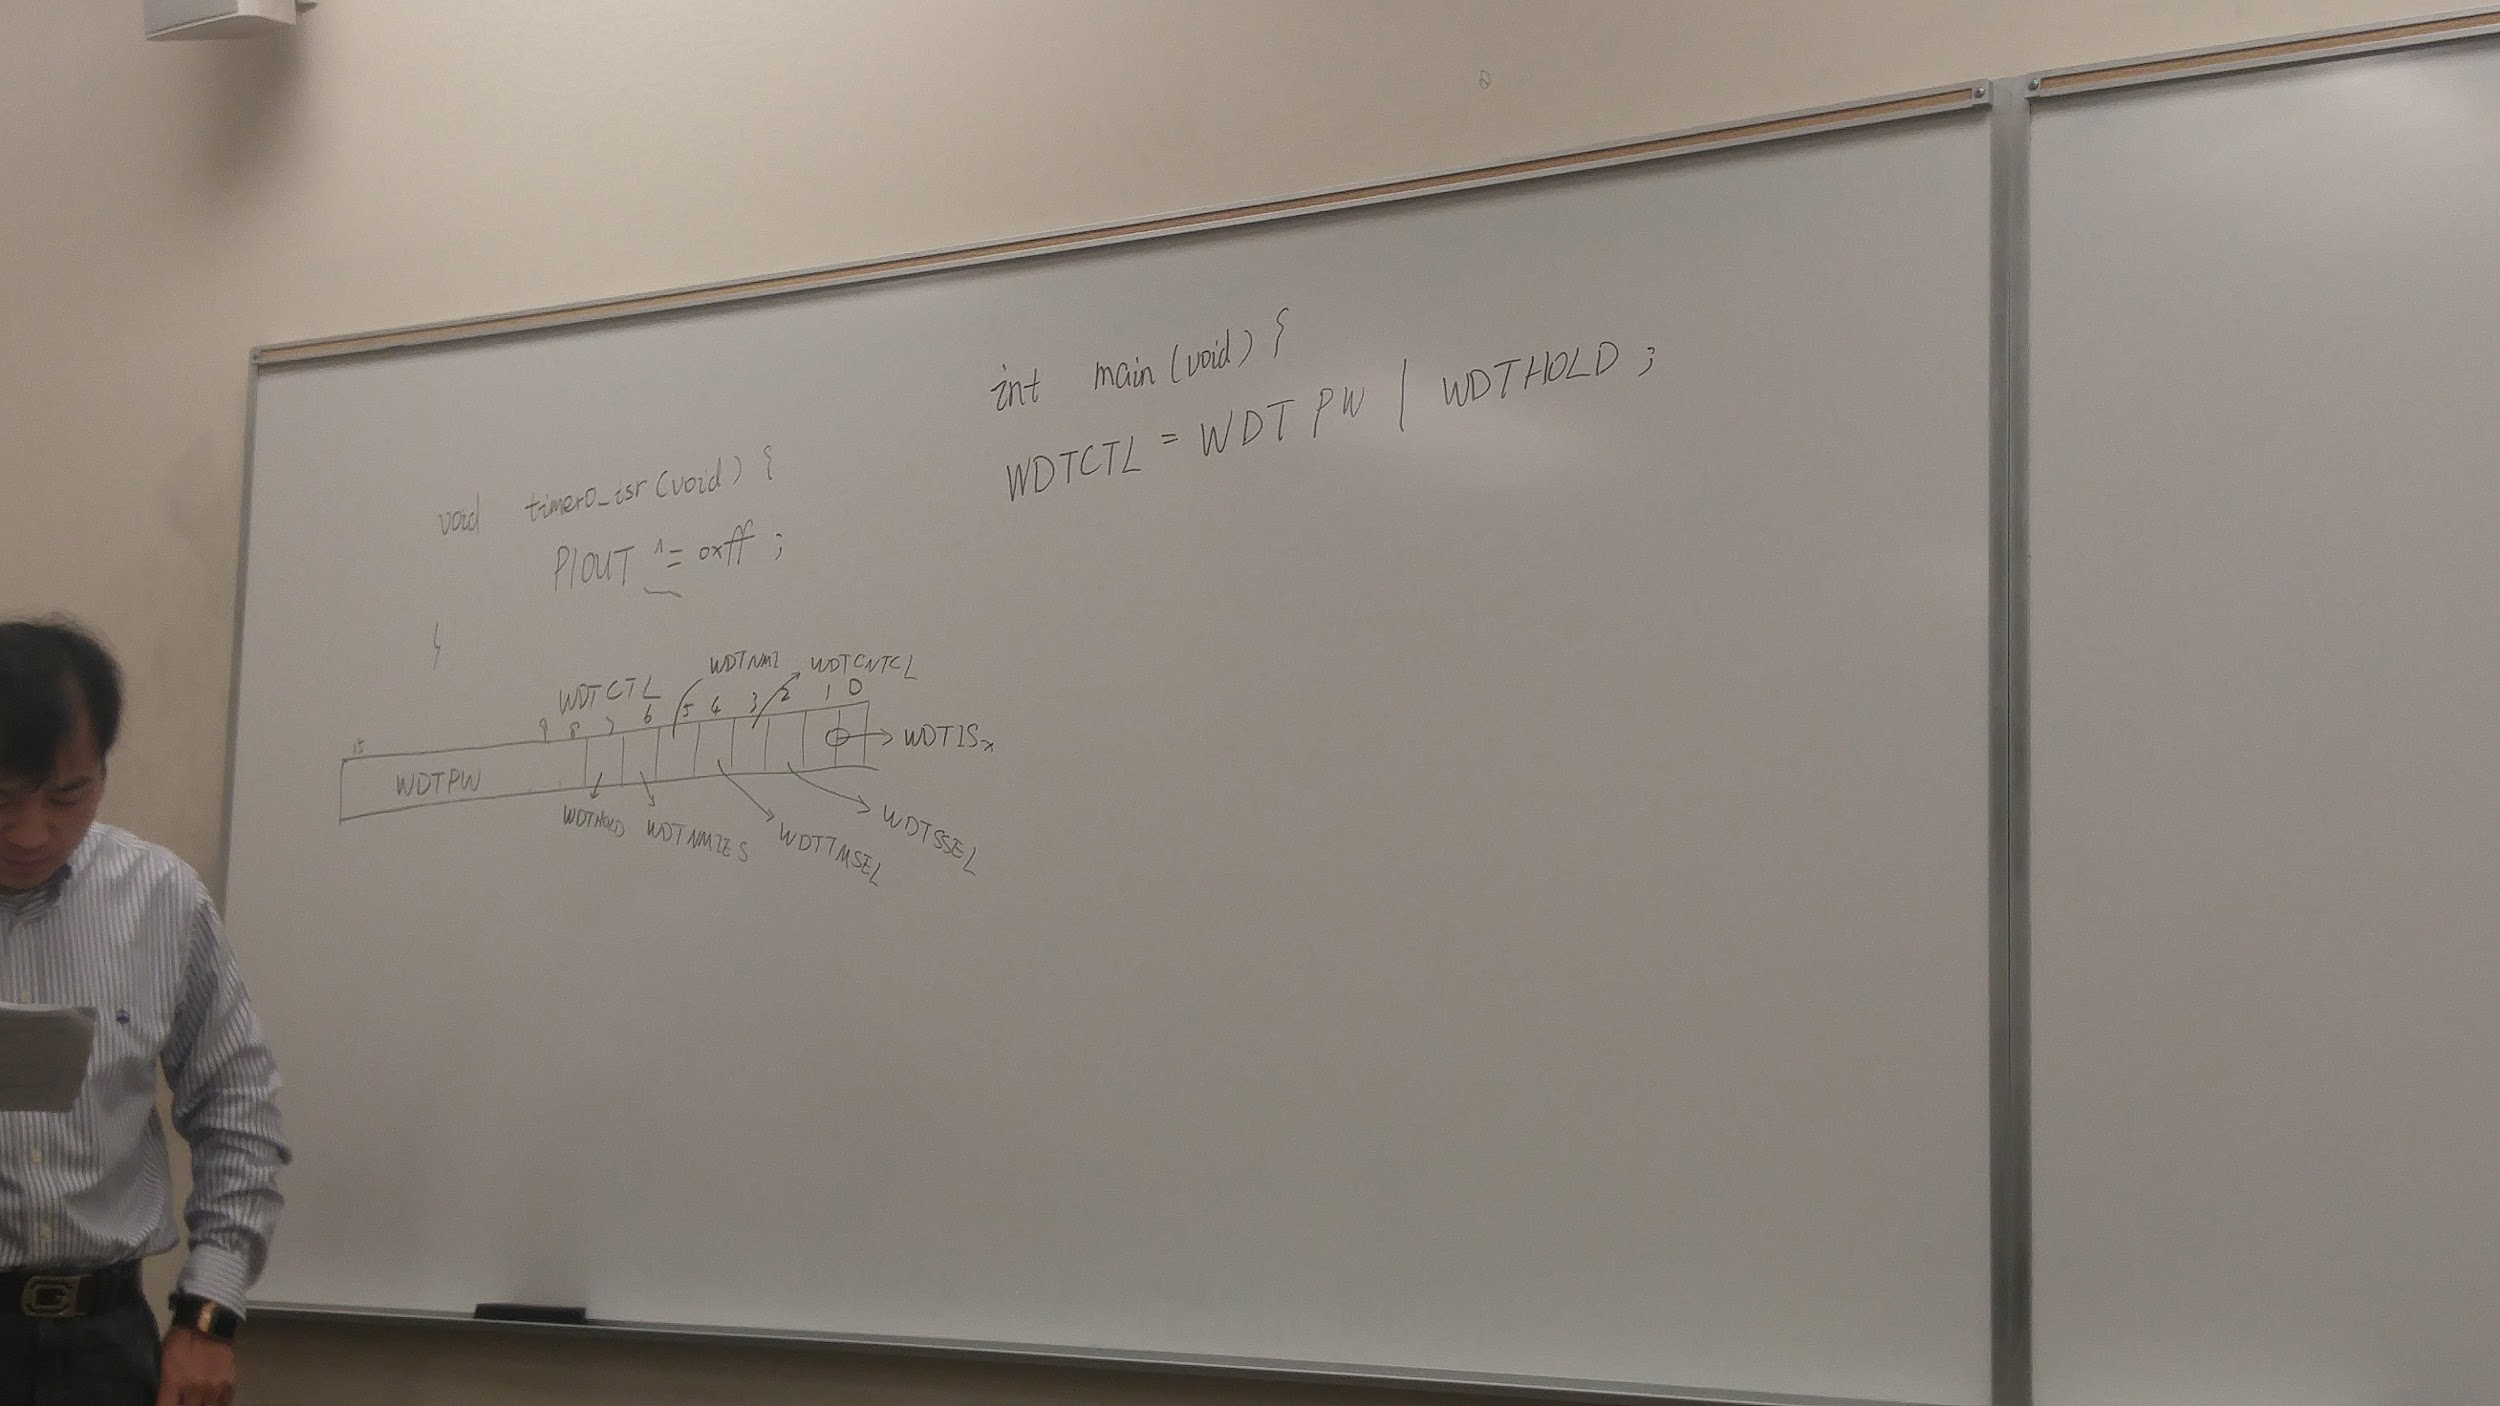 int main(void) {
WDTCTL = WDTPW | WDTHOLD ;
void timer0_isr(void) {
P1OUT ^= 0xff ;
}
WDTNMI WDTCNTCL
WDTCTL
15 9 8 7 6 5 4 3 2 1 0
WDTPW
WDTISx
WDTHOLD WDTNMIES WDTTMSEL WDTSSEL
G